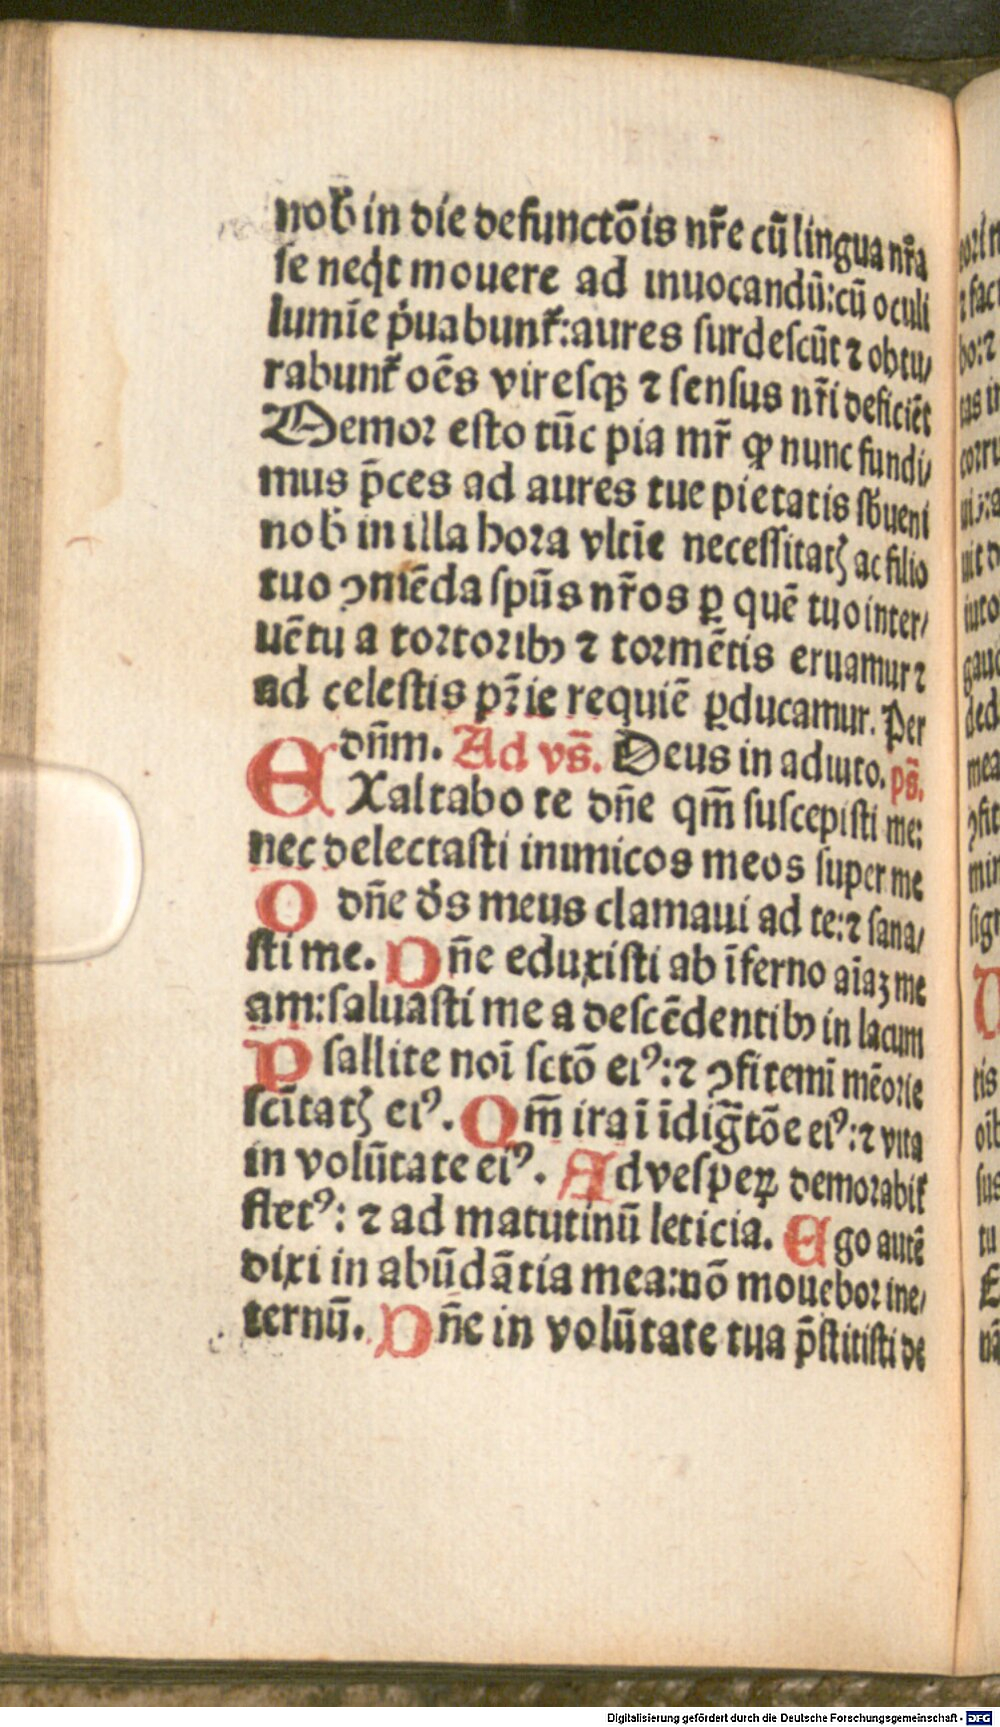 nob̄ in die defunctōis nr̄e cū lingua nr̄a
se neq̄t mouere ad inuocandū: cū oculi
lumīe p̄uabunt᷑: aures surdescūt ⁊ obtu/
rabunt᷑ oēs viresqꝫ ⁊ sensus nr̄i deficiēt
Memor esto tūc pia mr̄ ꝙ nunc fundi/
mus p̄ces ad aures tue pietatis sb̄ueni
nob̄ in illa hora vltīe necessitatꝭ ac filio
tuo ꝯmēda spūs nr̄os ꝑ quē tuo inter/
uētu a tortoribꝰ ⁊ tormētis eruamur ⁊
ad celestis pr̄ie requiē ꝑducamur. Per
dn̄m. Ad vs̄. Deus in adiuto. ps̄.
EXaltabo te dn̄e qm̄ suscepisti me:
nec delectasti inimicos meos super me
O dn̄e ds̄ meus clamaui ad te: ⁊ sana/
sti me. Dn̄e eduxisti ab īferno aīaꝫ me
am: saluasti me a descēdentibꝰ in lacum
Psallite noī sctō eiꝰ: ⁊ ꝯfitemī mēorie
scītatꝭ eiꝰ. Qm̄ ira ī īdiḡtōe eiꝰ: ⁊ vita
in volūtate eiꝰ. Ad vesperꝫ demorabit᷑
fletꝰ: ⁊ ad matutinū leticia. Ego autē
dixi in abūdātia mea: nō mouebor ine/
ternū. Dn̄e in volūtate tua p̄stitisti de
Digitalisierung gefördert durch die Deutsche Forschungsgemeinschaft - DFG